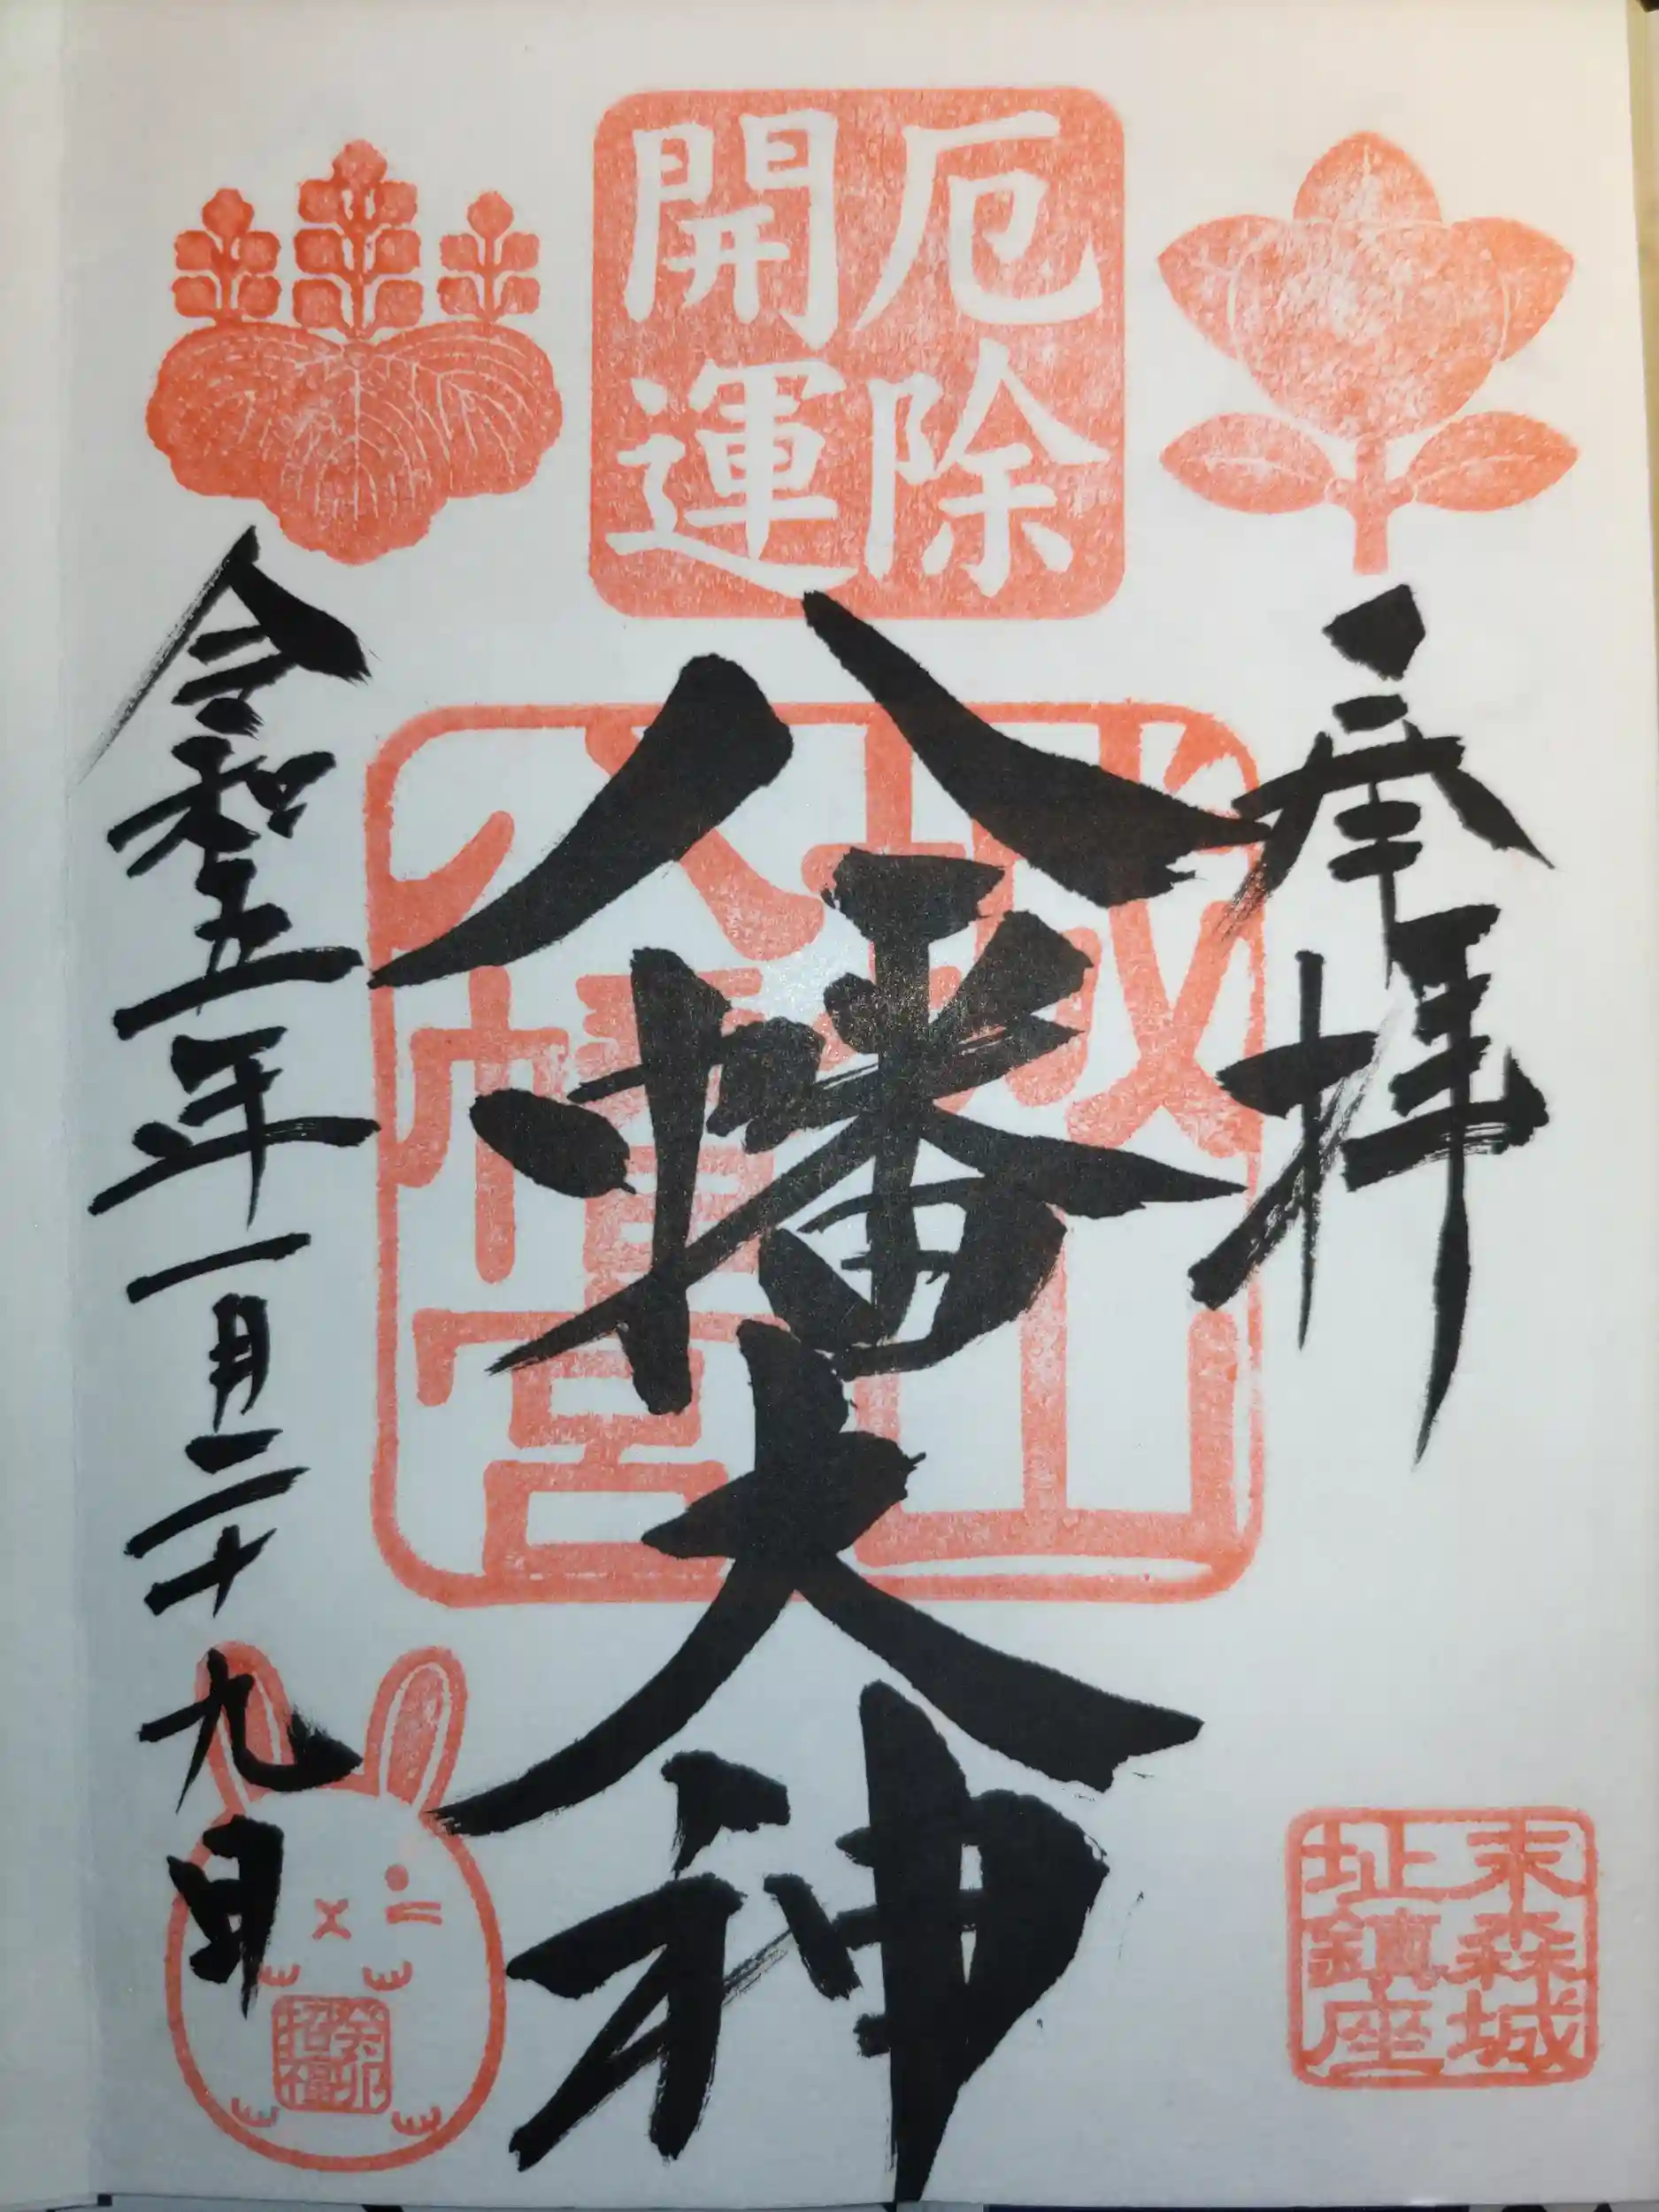 厄除
開運
奉拝
八幡大神
城山
八幡宮
令和五年一月二十九日
末森城
址鎮座
癸卯
招福